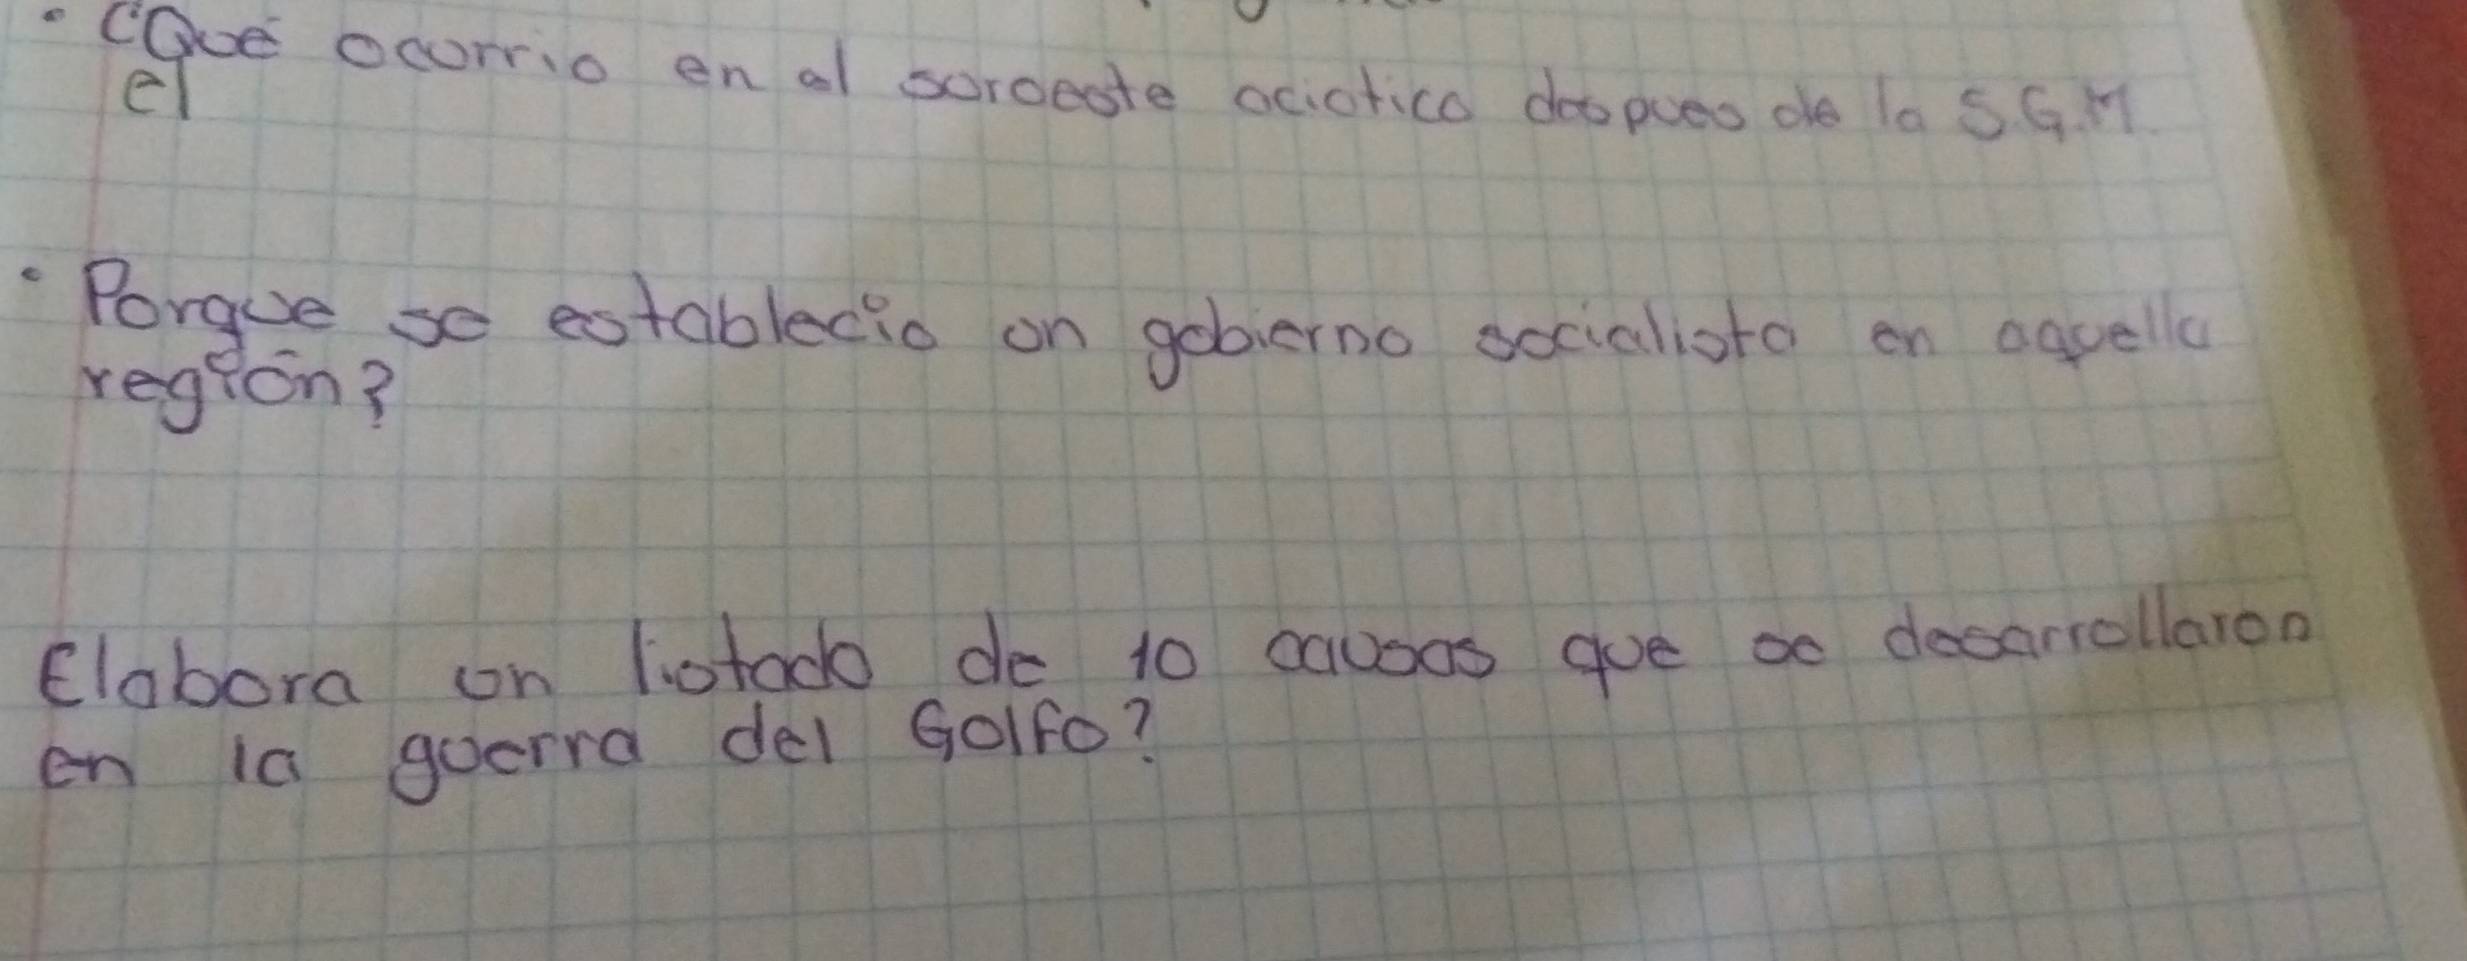 • ¿Qué ocurrio en al soroeste aciatico despues de la S.G.M.
el
• Porque se establecio un gobierno socialista en aquella
región?
Elabora un listado de 10 causas que se desarrollaron
en la guerra del Golfo?